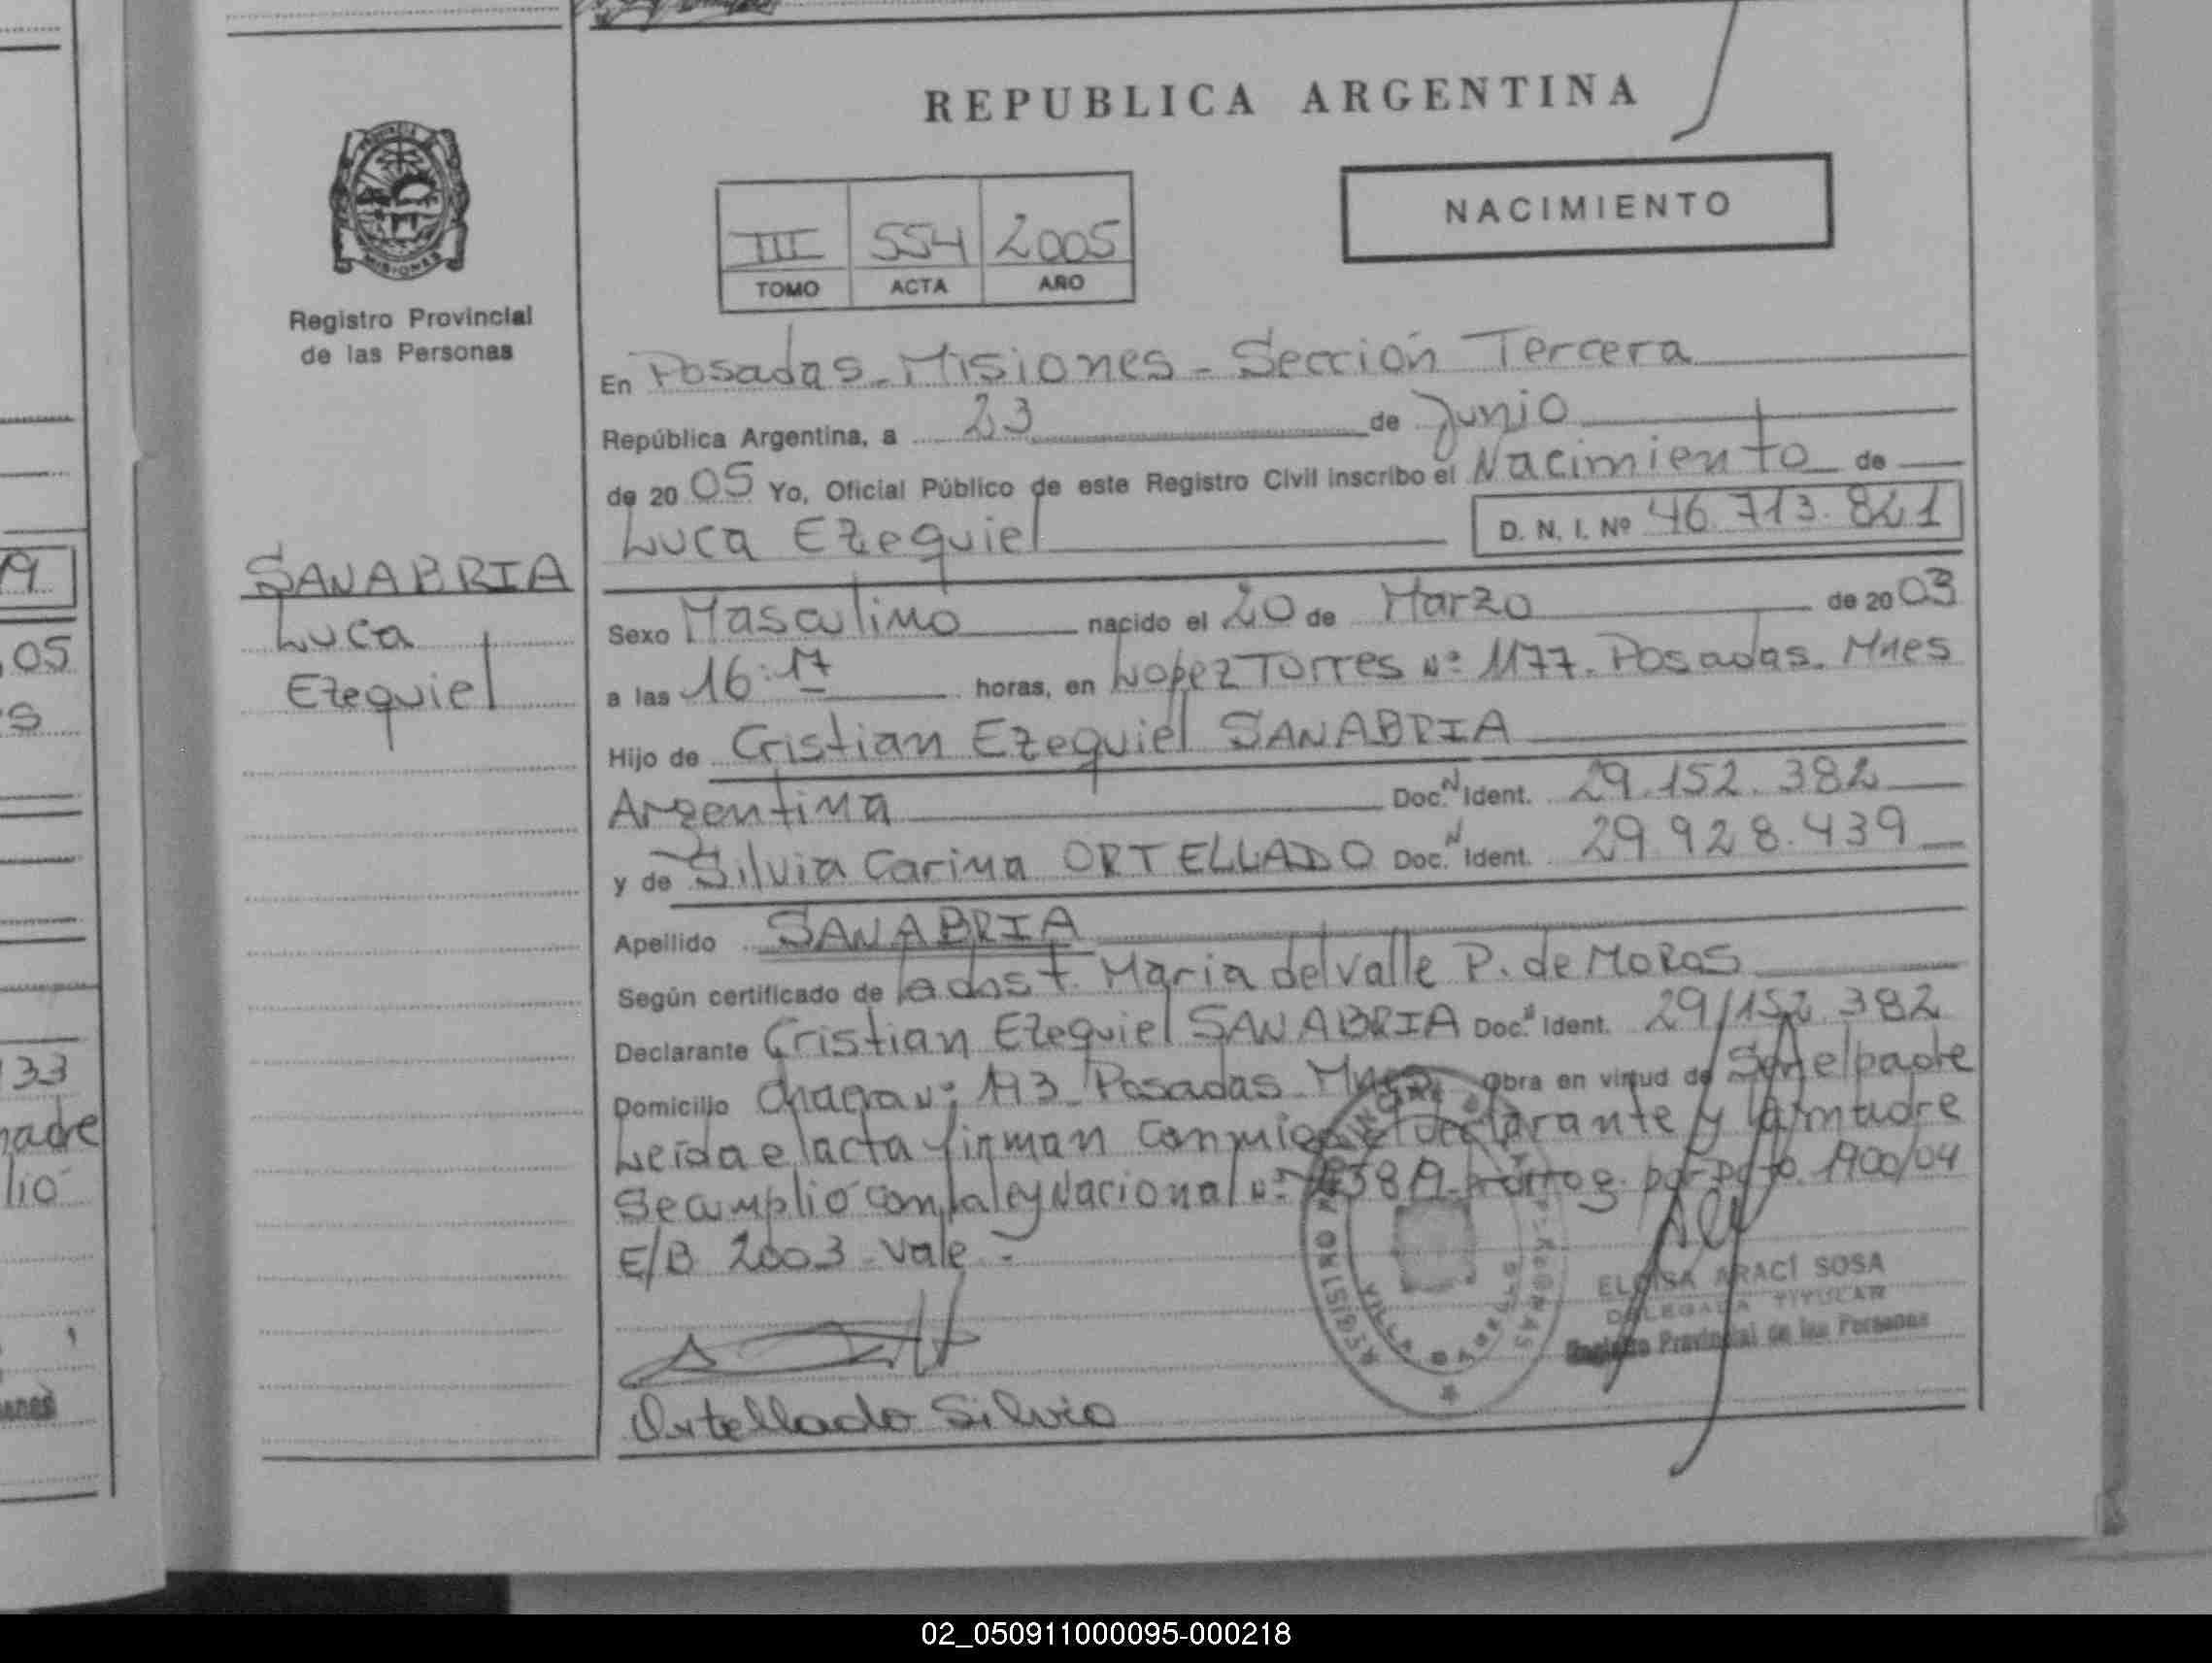 REPUBLICA ARGENTINA
PROVINCIA DE
MISIONES
Registro Provincial
de las Personas
NACIMIENTO
III 554 2005
TOMO ACTA AÑO
En Posadas - Misiones - Sección Tercera
República Argentina, a 23 de Junio
de 20 05 Yo, Oficial Público de este Registro Civil inscribo el Nacimiento de
Luca Ezequiel D. N. I. Nº 46.713.821
SANABRIA
Luca
Ezequiel
Sexo Masculino nacido el 20 de Marzo de 20 03
a las 16:17 horas, en Lopez Torres Nº 1177. Posadas. Mnes
Hijo de Cristian Ezequiel SANABRIA
Argentina Doc. N Ident. 29.152.382
y de Silvia Carina ORTELLADO Doc. N Ident. 29.928.439
Apellido SANABRIA
Según certificado de la obst. Maria del valle P. de MORAS
Declarante Cristian Ezequiel SANABRIA Doc. N Ident. 29.152.382
Domicilio Chacra Nº 193 Posadas Mnes Obra en virtud de Ser el padre
Leída el acta firman conmigo el declarante y la madre
Se cumplió con la ley Nacional Nº prorrog. por Dcto. 1900/04
E/B 2003 - Vale -
ELOISA ARACÍ SOSA
DELEGADA TITULAR
Registro Provincial de las Personas
Ortellado Silvia
19
05
s
33
madre
lió
02_050911000095-000218